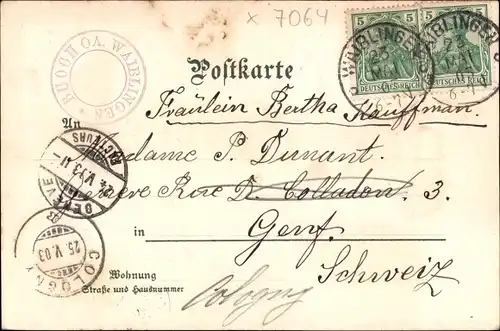 x 7064
5 5
DEUTSCHES REICH DEUTSCHES REICH
WAIBLINGEN WAIBLINGEN
23 MAI
6-7
BUOCH OA. WAIBLINGEN
Postkarte
Fräulein Bertha Kauffman.
An
Madame P. Dunant.
Rue D. Colladon. 3.
in Genf.
Schweiz
FACTEURS
GENÈVE
COLOGNY
25.V.03
Wohnung
Straße und Hausnummer
Cologny